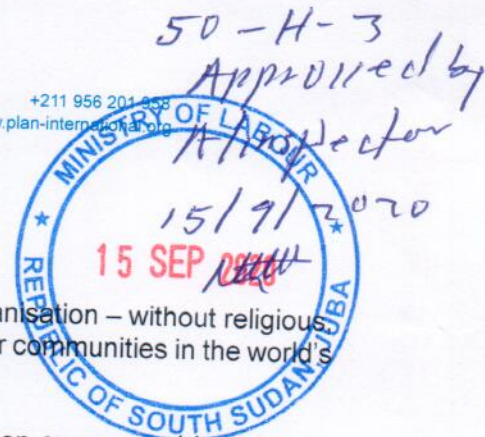 50-H-3
Approved by
A/Inspector
15/9/2020
+211 956 201 958
.plan-international.org
MINISTRY OF LABOUR
REPUBLIC OF SOUTH SUDAN, JUBA
15 SEP 2020
anisation – without religious,
r communities in the world's